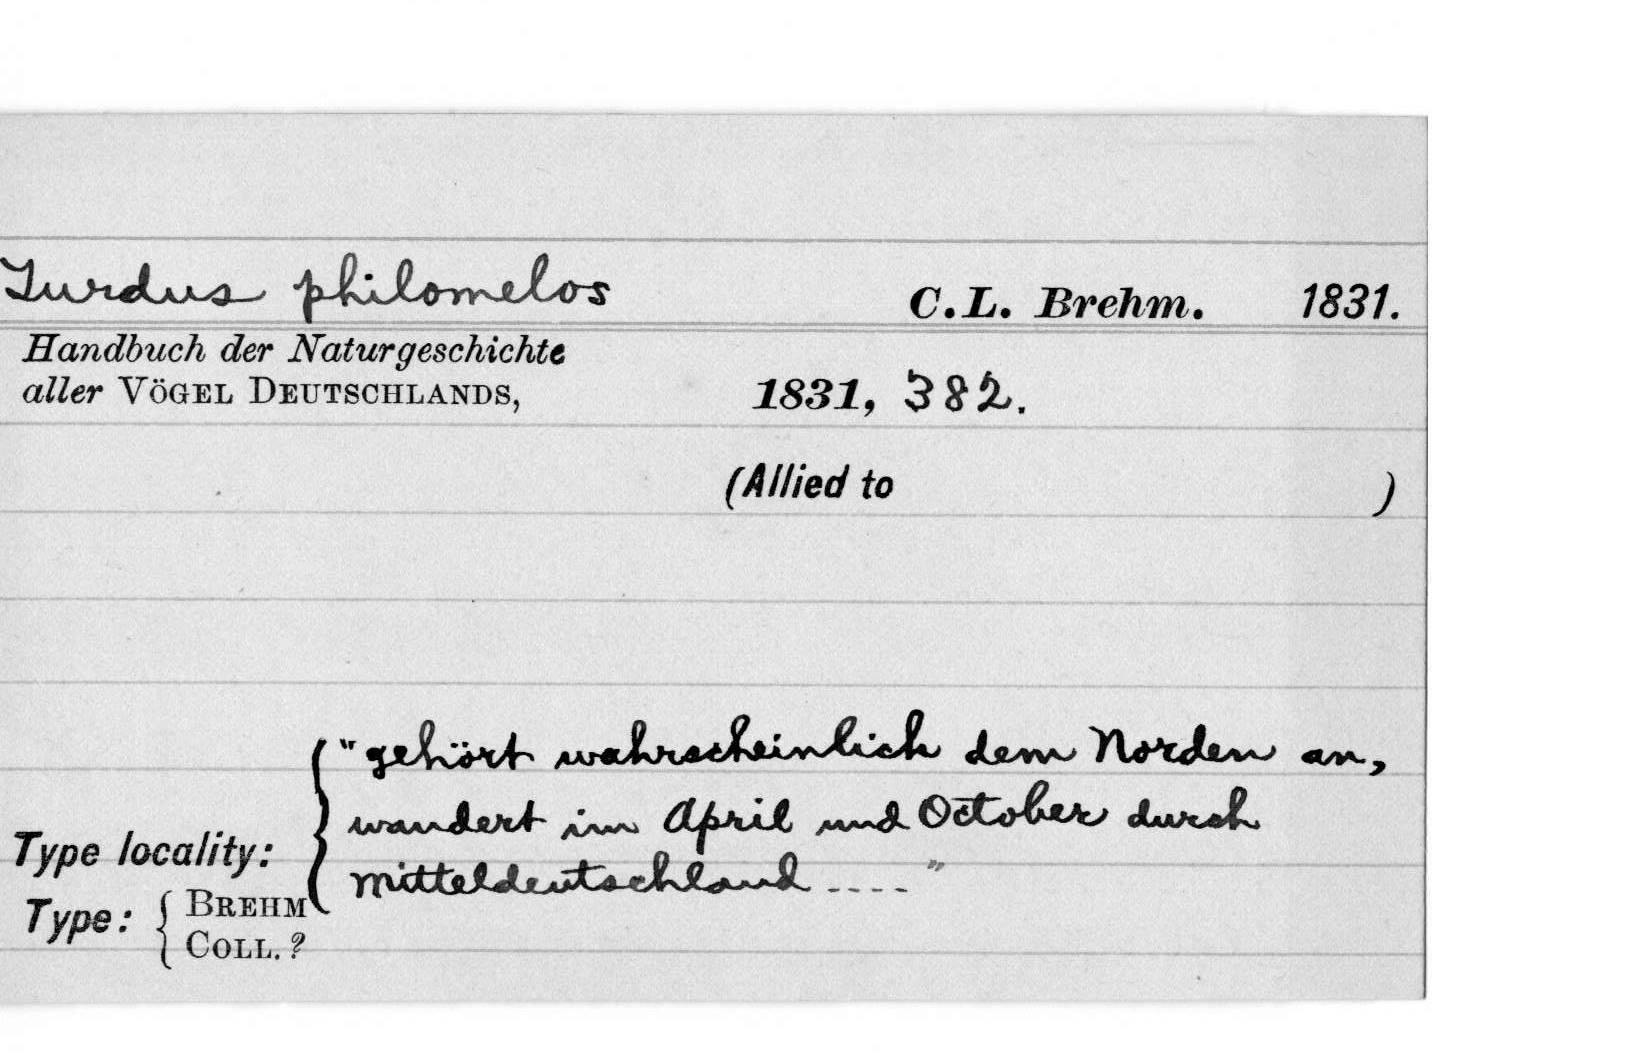 Turdus philomelos C.L. Brehm. 1831.
Handbuch der Naturgeschichte
aller VÖGEL DEUTSCHLANDS, 1831, 382.
(Allied to )
"gehört wahrscheinlich dem Norden an,
wandert im April und October durch
Type locality: Mitteldeutschland ...."
Type: { BREHM
COLL. ?